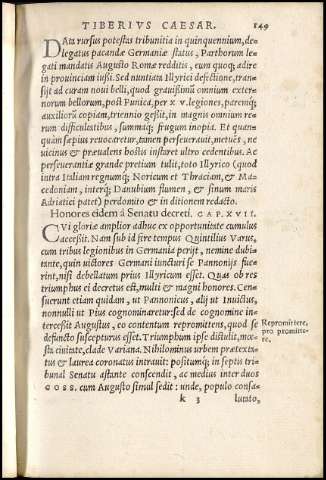 TIBERIVS CAESAR. 149
DAta rursus potestas tribunitia in quinquennium, de-
legatus pacandæ Germaniæ status, Parthorum le-
gati mandatis Augusto Romæ redditis, eum quoq; adire
in prouinciam iussi. Sed nuntiata Illyrici defectione, tran-
sijt ad curam noui belli, quod grauißimũ omnium exter-
norum bellorum, post Punica, per xv. legiones, paremq́;
auxiliorũ copiam, triennio geßit, in magnis omnium re-
rum difficultatibus, summaq; frugum inopia. Et quan-
quàm sæpius reuocaretur, tamen perseuerauit, metuẽs, ne
uicinus & præualens hostis instaret ultro cedentibus. Ac
perseuerantiæ grande pretium tulit, toto Illyrico (quod
intra Italiam regnumq́; Noricum et Thraciam, & Ma-
cedoniam, interq́; Danubium flumen, & sinum maris
Adriatici patet) perdomito & in ditionem redacto.
Honores eidem à Senatu decreti. CAP. XVII.
CVi gloriæ amplior adhuc ex opportunitate cumulus
acceßit. Nam sub id fere tempus Quintilius Varus,
cum tribus legionibus in Germania perijt, nemine dubi-
tante, quin uictores Germani iuncturi se Pannonijs fue-
rint, nisi debellatum prius Illyricum esset. Quas ob res
triumphus ei decretus est, multi & magni honores. Cen-
suerunt etiam quidam, ut Pannonicus, alij ut Inuictus,
nonnulli ut Pius cognominaretur: sed de cognomine in-
tercessit Augustus, eo contentum repromittens, quod se
defuncto suscepturus esset. Triumphum ipse distulit, mœ-
sta ciuitate, clade Variana. Nihilominus urbem prætexta-
tus & laurea coronatus intrauit: positumq́; in septis tri-
bunal Senatu astante conscendit, ac medius inter duos
COSS. cum Augusto simul sedit: unde, populo consa-
k 3 lutato,
Repromittere,
pro promitte-
re.